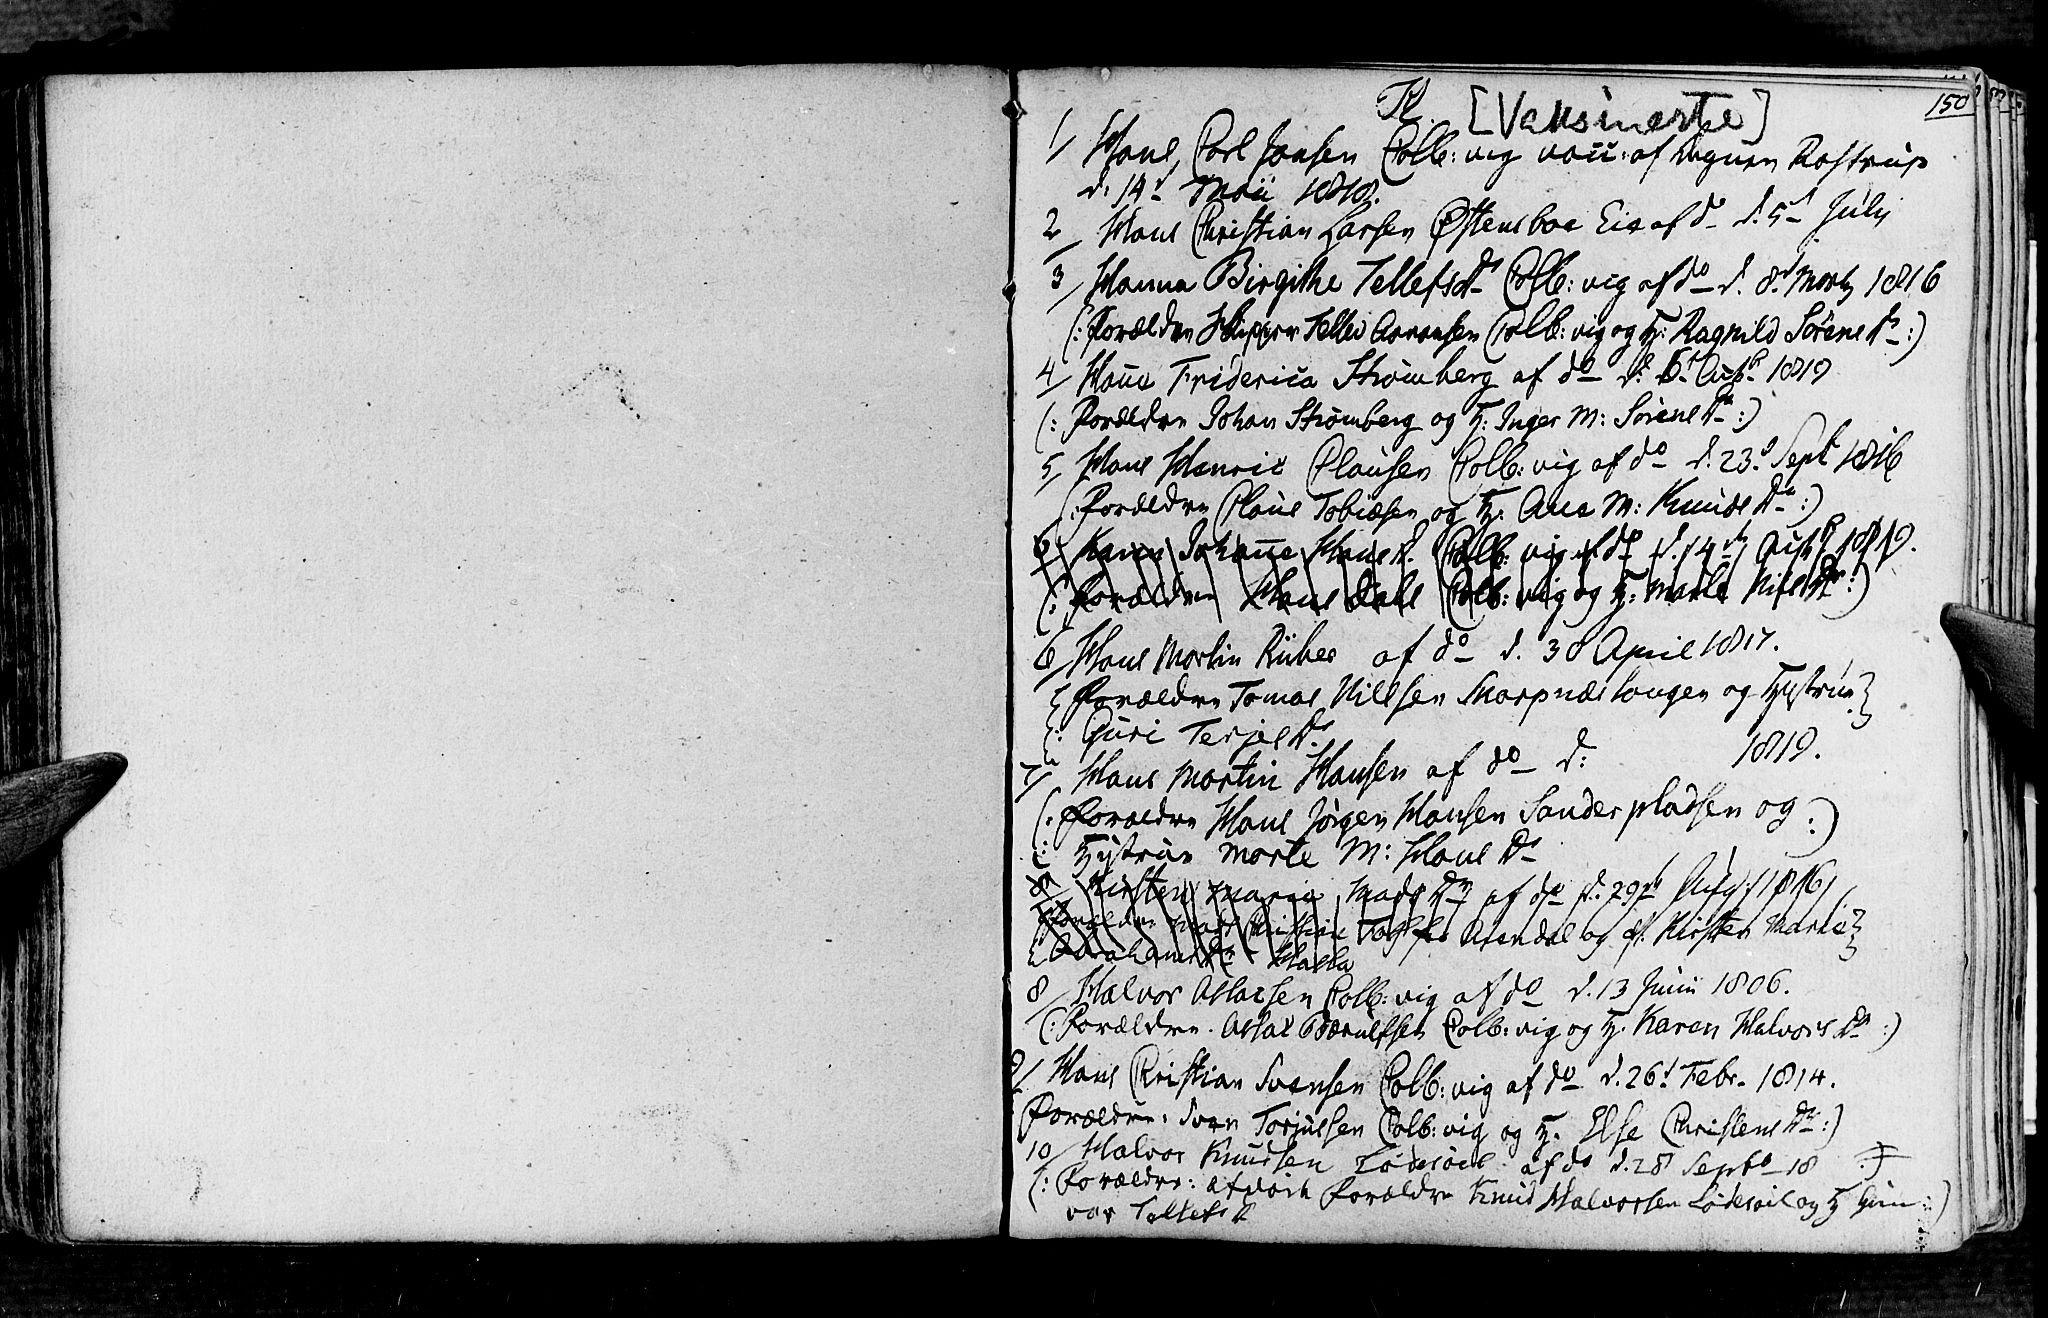 H. [Vaksinerte] 150
1/ Hans Carl Jansen Colb: vig vacc: af Rostrup
d: 14d Maii 1818.
2/ Hans Christian Larsen Østensboe Eie af do d. 5d July
3/ Hanna Birgithe Tellefsdr Colb: vig af do d. 8d Martz 1816
(: Forældre Tellev Aanonsen Colb: vig og H: Ragnild Sørensdr :)
4/ Friderica Strømberg af do d: 1819
(: Forældre Johan Strømberg og H: Inger M: Sørensdr :)
5/ Hans Henric Clausen Colb: vig af do d. 23d Sept 1816
(: Forældre Claus Tobiasen og H. Ane M: Knudsdr :)
6 Karen Johanne Hansdr. Colb: vig af do d. 14d 1819.
(: Forældre Hans Colb: vig og H: Nilsdr :)
6/ Hans Martin af do d. 30 April 1817.
{ Forældre Tomas Nilsen Skarpnæs tangen og Hustrue }
{: Guri Terjesdr
7/ Hans Martin Hansen af do d: 1819.
(: Forældre Hans Jørgen Hansen Sanderpladsen og :)
(: Hustrue Marte M: Hansdr
8/ Kirsten Maria Madsdr af do d. 29d 1816
Forældre Mads Christian Arendal og Kirsten Marie }
{ Abrahamsdr
8/ Halvor Aslacsen Colb: vig af do d. 13 Junii 1806.
(: Forældre. Aslac Colb: vig og H. Karen Halvorsdr :)
9/ Hans Christian Svensen Colb: vig af do d. 26d Febr. 1814.
Forældre: Sven Torjussen Colb: vig og H. Else Christensdr :)
10/ Halvor Knudsen af do d. 28 Septb 18 :)
(: Forældre: Forældre Knud Halvorsen og H :)
vor Tellefsdr